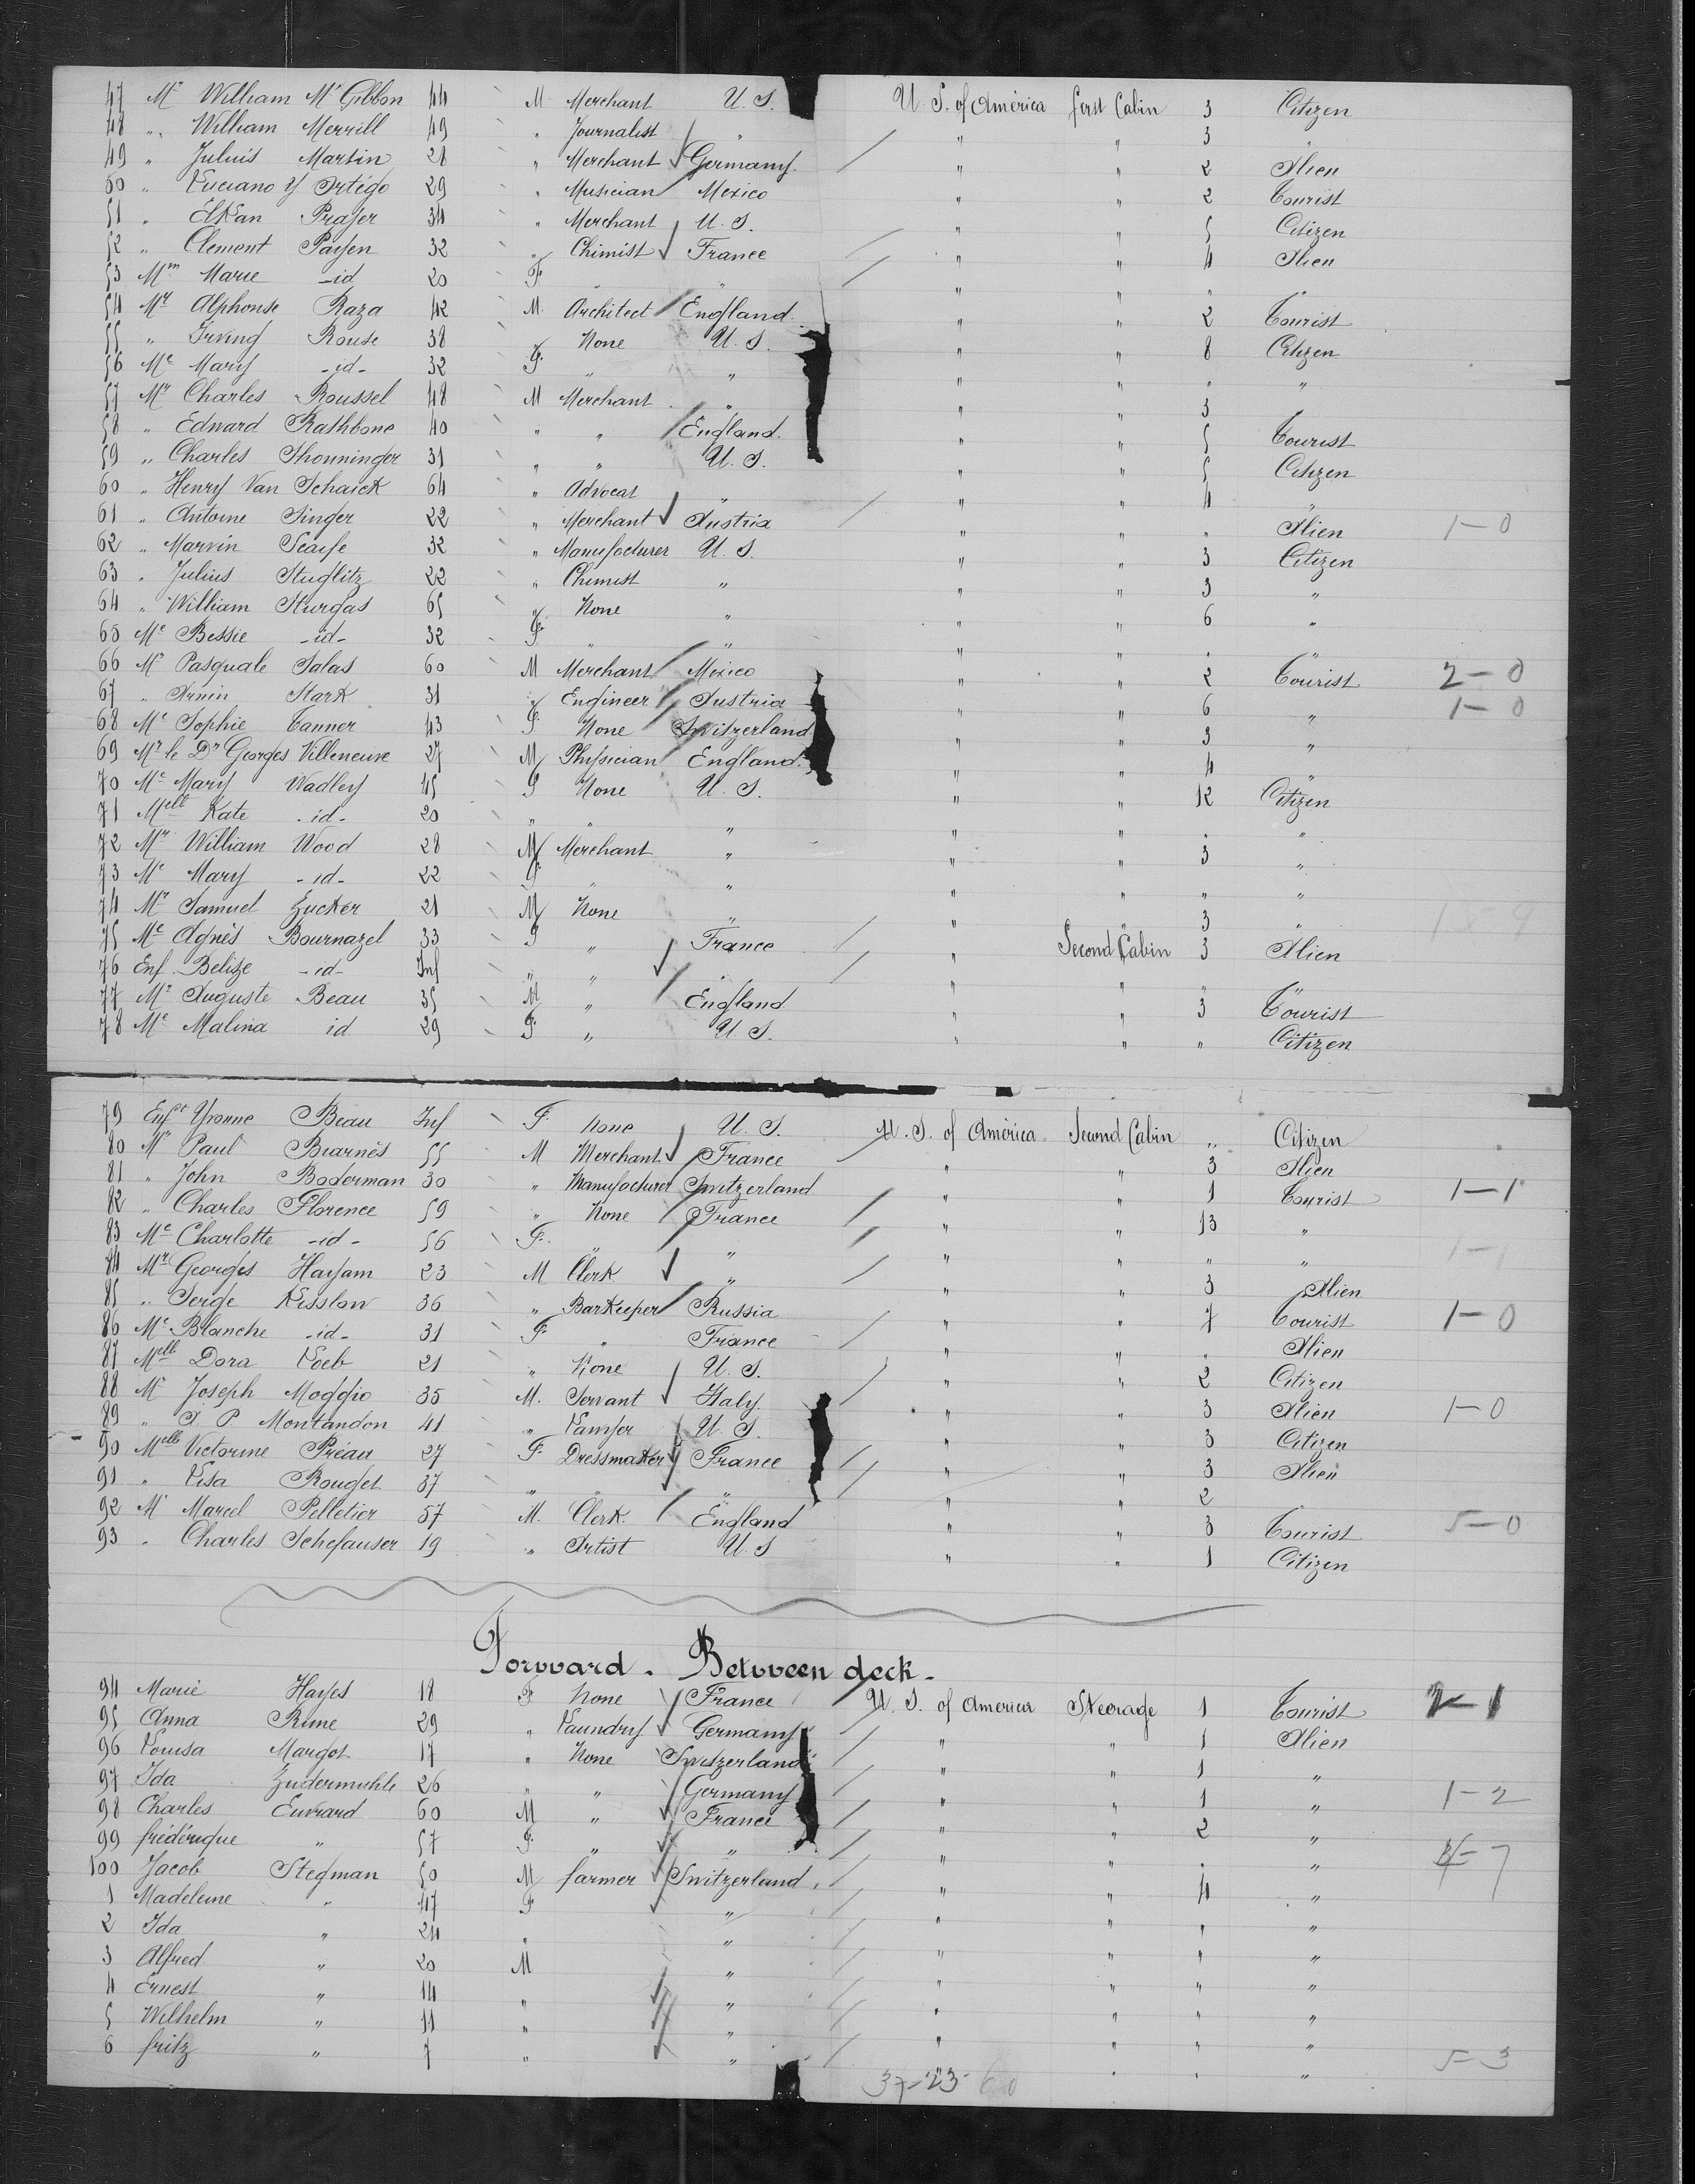 47 Mr William Mc Gibbon 44 M. Merchant U. S. U. S. of América first Cabin 3 Citizen
48 " William Merrill 49 " Journalist " " " 3 "
49 " Juluis Martin 28 " Merchant Germany " " 2 Alien
50 " Luciano y Ortégo 29 " Musician Mexico " " 2 Tourist
51 " Elkan Prager 34 " Merchant U. S. " " 5 Citizen
52 " Clement Payen 32 " Chimist France " " 4 Alien
53 Mm Marie -id 20 F. " " " "
54 Mr Alphonse Raza 42 M. Architect England " " 2 Tourist
55 " Irving Rouse 38 " None U. S. " " 8 Citizen
56 Me Mary -id- 32 F. " " " " " "
57 Mr Charles Roussel 48 M Merchant " " " 3
58 " Edward Rathbone 40 " " England. " " 5 Tourist
59 " Charles Thonninger 31 " " U. S. " " 5 Citizen
60 " Henry Van Schaick 64 " Advocat " " " 4 "
61 " Antoine Singer 22 " Merchant Austria " " " Alien 1-0
62 " Marvin Scaife 32 " Manufacturer U. S. " " 3 Citizen
63 " Julius Stuglitz 22 " Chimist " " " 3 "
64 " William Sturgas 65 " None " " " 6 "
65 Me Bessie -id- 32 F. " " " " " "
66 Mr Pasquale Salas 60 M Merchant Mexico " " 2 Tourist 2-0
67 " Armin Stark 31 " Engineer Austria " " 6 " 1-0
68 Me Sophie Tanner 43 F. None Switzerland " " 3 "
69 Mr le Dr Georges Villeneuve 27 M Physician England. " " 4 "
70 Me Mary Wadley 45 F None U. S. " " 12 Citizen
71 Melle Kate -id- 20 " " " " " " "
72 Mr William Wood 28 M Merchant " " " 3 "
73 Me Mary -id- 22 F " " " " " "
74 Mr Samuel Zucker 21 M None " " " 3 "
75 Me Agnès Bournazel 33 F " France " Second Cabin 3 Alien
76 Enf. Belize -id- Inf " " " " " "
77 Mr Auguste Beau 35 M " England " " 3 Tourist
78 Me Malina id 29 F. " U S. " " " Citizen
79 Enft Yvonne Beau Inf F. None U. S. U. S. of América Second Cabin " Citizen
80 Mr Paul Biarnès 55 M Merchant France " " 3 Alien
81 " John Boderman 30 " Manufacturer Switzerland " " 1 Tourist 1-1
82 " Charles Florence 59 " None France " " 13 "
83 Me Charlotte -id- 56 F. " " " " " " 1-1
84 Mr Georges Hayam 23 M Clerk " " " 3 Alien
85 " Serge Kisslow 36 " Barkeeper Russia " " 7 Tourist 1-0
86 Me Blanche -id- 31 F. " France " " " Alien
87 Melle Dora Loeb 21 " None U. S. " " 2 Citizen
88 Mr Joseph Moggio 35 M. Servant Italy. " " 3 Alien 1-0
89 " A P Montandon 41 " Lawyer U. S. " " 3 Citizen
90 Melle Victorine Préau 27 F. Dressmaker France " " 3 Alien
91 " Lisa Rouget 37 " " " " " 2
92 Mr Marcel Pelletier 57 M. Clerk England " " 3 Tourist 5-0
93 " Charles Schefauser 19 " Artist U. S " " 1 Citizen
Forward. Between deck-
94 Marie Hayes 18 F None France U. S. of America Steerage 1 Tourist 2-1
95 Anna Rime 29 " Laundry Germany " " 1 Alien
96 Louisa Margot 17 " None Switzerland " " 1 "
97 Ida Zudermuhle 26 " " Germany " " 1 " 1-2
98 Charles Euvrard 60 M " France " " 2 "
99 frédérique " 57 F. " " " " " "
100 Jacob Stegman 50 M farmer Switzerland. " " 4 "
1 Madeleine " 47 F " " " " "
2 Ida " 24 " " " " " "
3 Alfred " 20 M " " " " "
4 Ernest " 14 " " " " " "
5 Wilhelm " 11 " " " " " "
6 fritz " 7 " " " " " " 5-3
37-23 60